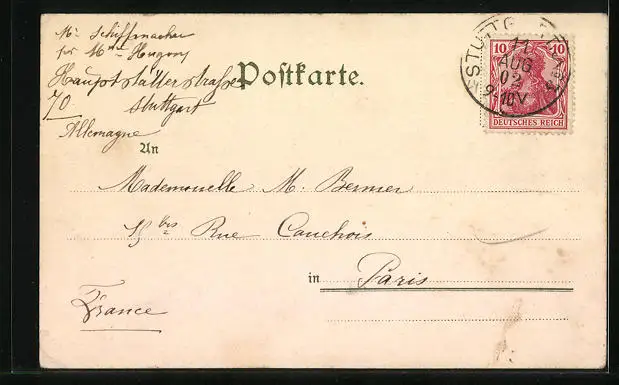 Mr Schiffmacher
Hauptstätterstraße
70 Stuttgart
Allemagne
Postkarte.
10 10
STUTTG
11
AUG
02
9-10V
DEUTSCHES REICH
An
Mademoiselle M. Bernier
bis Rue Cauchois
in Paris
France